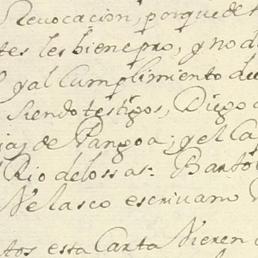 Revocacion, porque de
tes les bien epro, y no d
y al Cumplimiento de
siendo testigos, Diego
jas de Pangoa; y el Ca
Rio de los sas: Bartol
Velasco escriuano
tos esta Carta Vieren